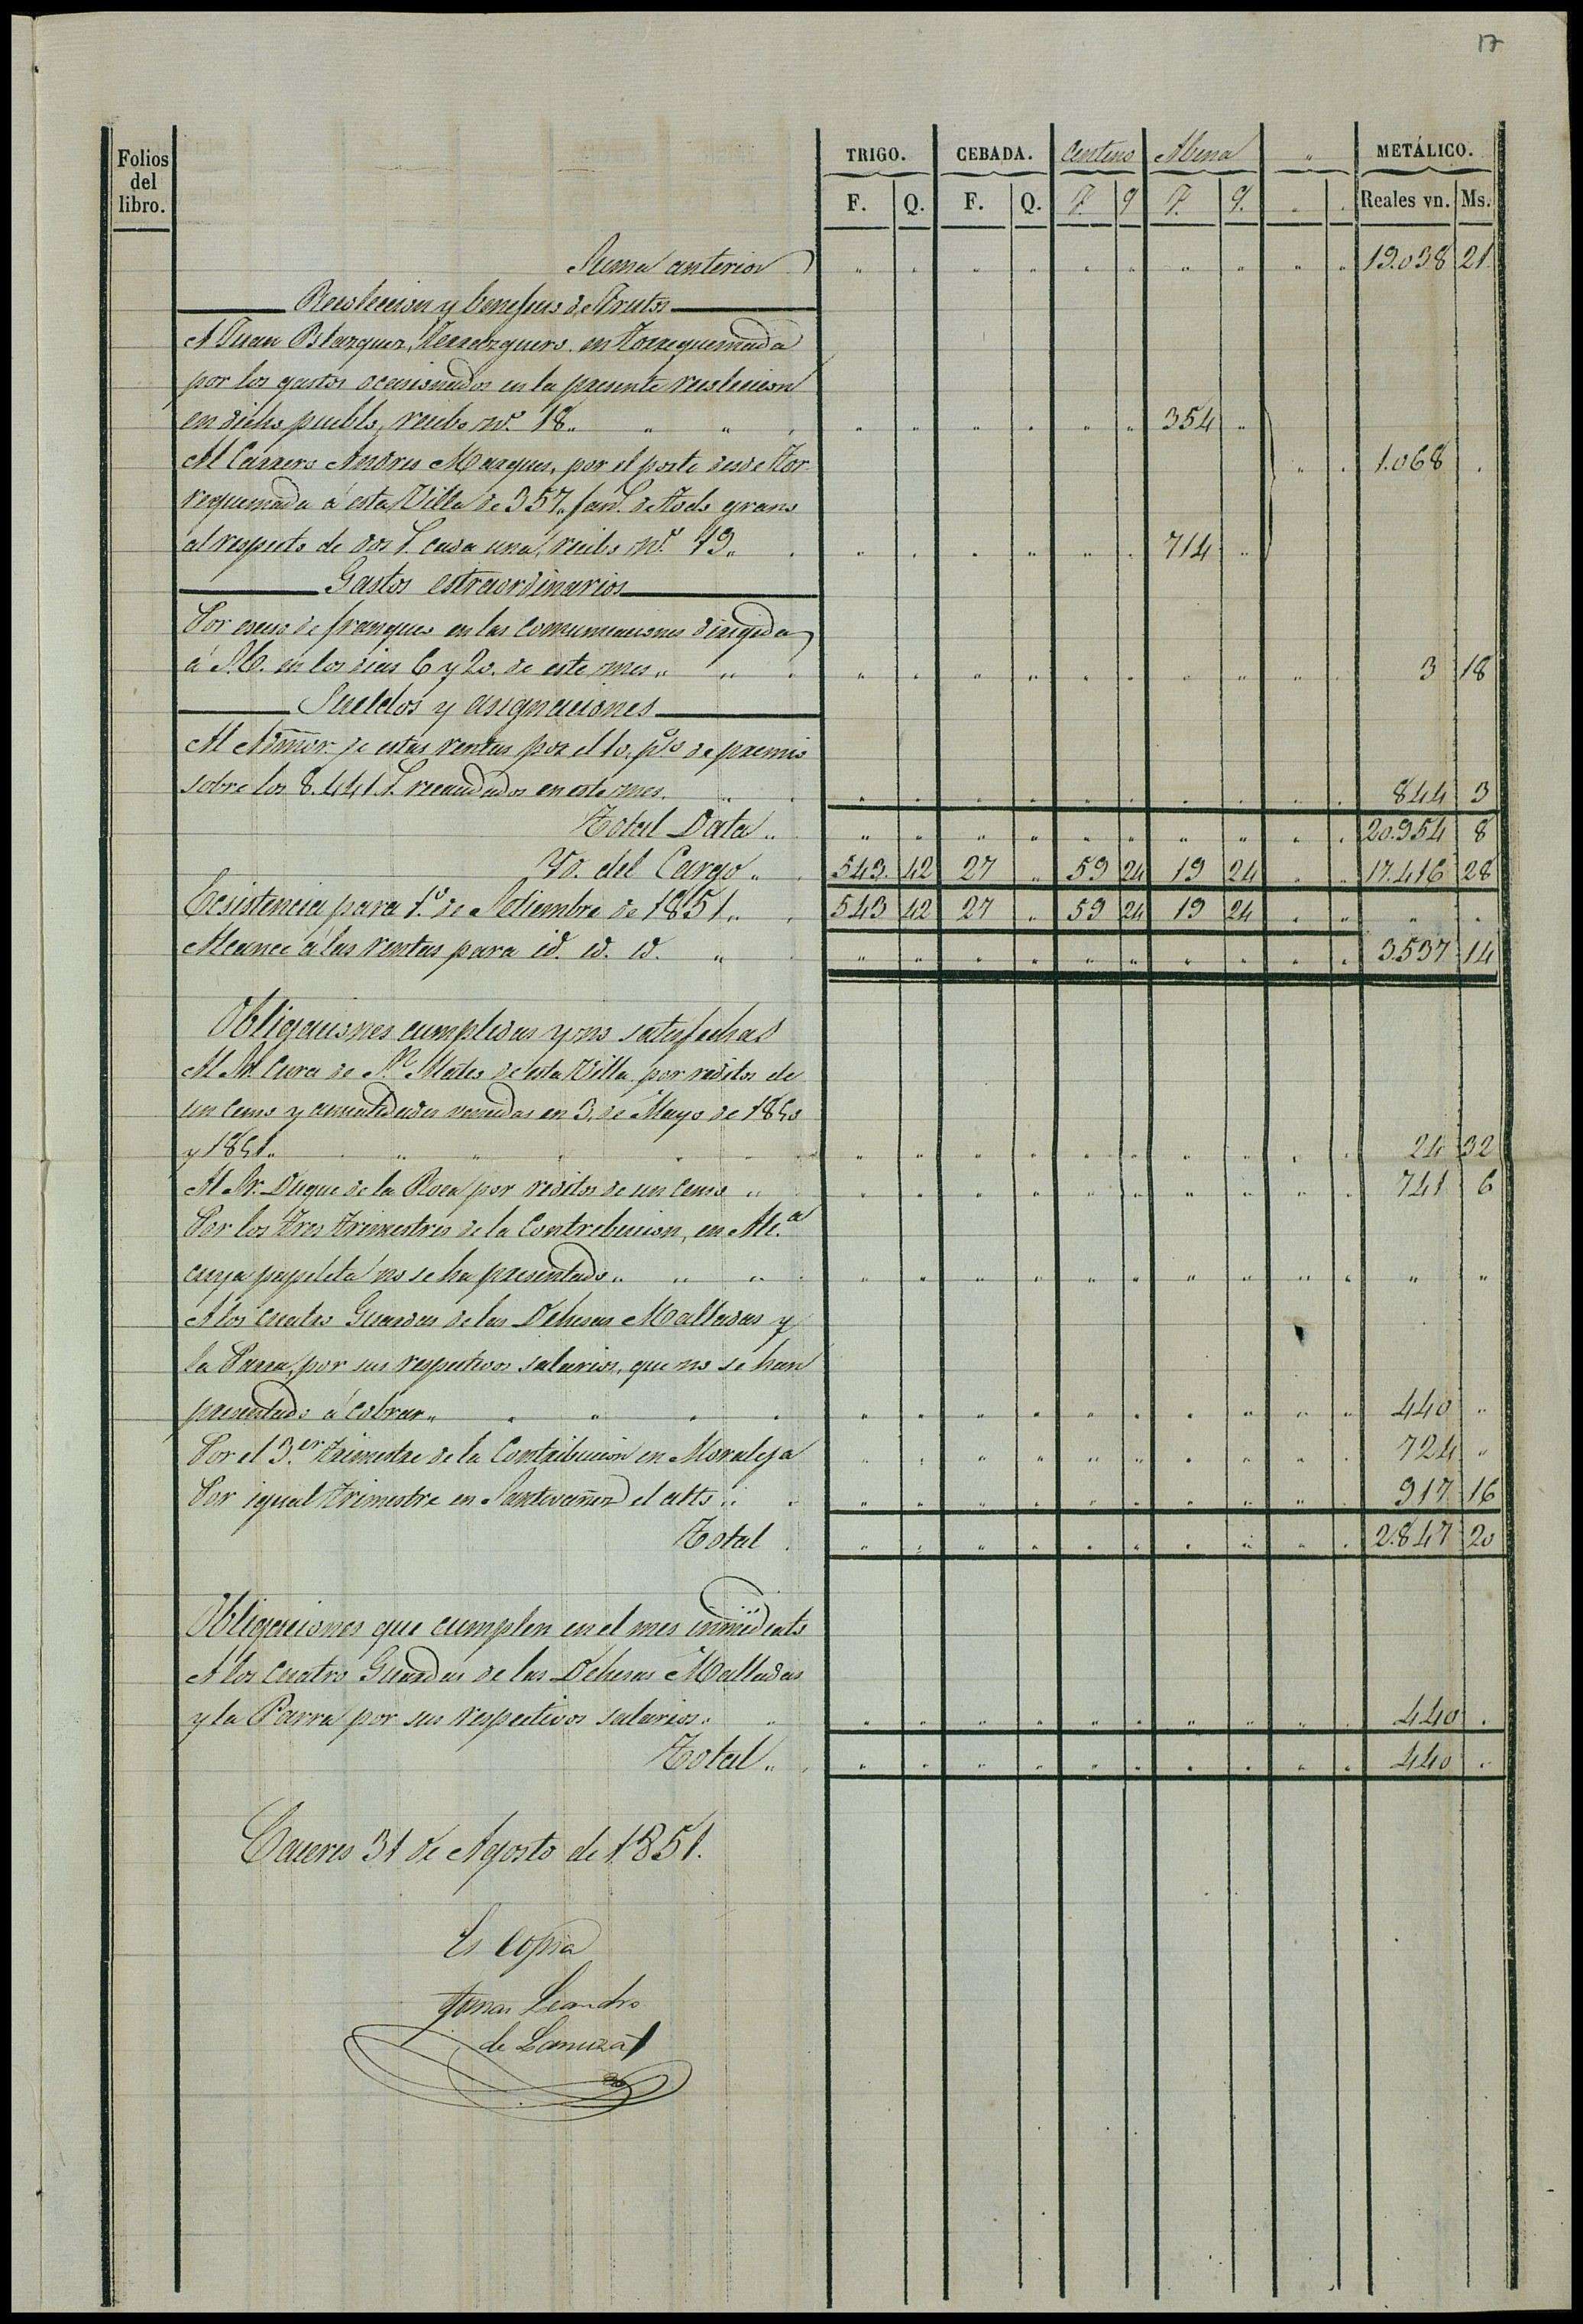 17
Folios del libro. TRIGO. CEBADA. Centeno Abena " METÁLICO.
F. Q. F. Q. F. Q F. Q. Reales vn. Ms.
Suma anterior 19.038 21
Recoleccion y beneficio de Frutos
A Juan Blazquez, Terrazguero en Torrequemada
por los gastos ocasionados en la presente recolecion
en dicho pueblo, recibo nº. 18. 354
Al Carrero Andres Marques, por el porte desde Tor- 1.068
requemada á esta Villa de 357 fans. de todo grano
al respecto de dos r. cada una, recibo nº. 19. 714
Gastos estraordinarios
Por esceso de franqueo en las comunicaciones dirigidas
á S.E. en los dias 6 y 20 de este mes 3 18
Sueldos y asignaciones
Al Admor. de estas rentas por el 10 p% de premio
sobre los 8.441 r. recaudados en este mes. 844 3
Total Data 20.954 8
Yd. del Cargo 543 42 27 " 59 24 19 24 17.416 28
Ecsistencia para 1º de Setiembre de 1851 543 42 27 " 59 24 19 24
Alcance á las rentas para id. id. id. 3.537 14
Obligaciones cumplidas y no satisfechas
Al Sr. Cura de Sn. Mateo de esta Villa por reditos de
un censo y anualidades vencidas en 3 de Mayo de 1850
y 1851 24 32
Al Sr. Duque de la Roca por reditos de un censo 741 6
Por los tres trimestres de la Contrebucion, en Alc.a
cuya papeleta no se ha presentado
A los cuatro Guardas de las Dehesas Malladas y
la Parra, por sus respectivos salarios, que no se han
presentado á cobrar 440
Por el 3.er trimestre de la Contribucion en Moraleja 724
Por igual trimestre en Santivañez el alto 917 16
Total 2.847 20
Obligaciones que cumplen en el mes inmediato
A los cuatro Guardas de las Dehesas Malladas
y la Parra por sus respectivos salarios. 440
Total 440
Caceres 31 de Agosto de 1851.
Es copia
Tomas Leandro
de Lanuza